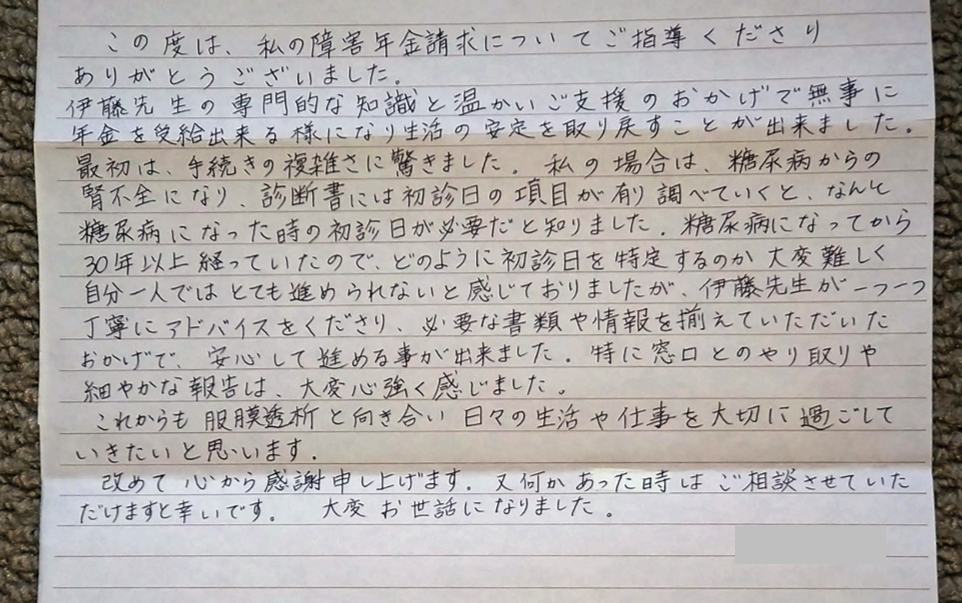 この度は、私の障害年金請求についてご指導くださり
ありがとうございました。
伊藤先生の専門的な知識と温かいご支援のおかげで無事に
年金を受給出来る様になり生活の安定を取り戻すことが出来ました。
最初は、手続きの複雑さに驚きました。私の場合は、糖尿病からの
腎不全になり、診断書には初診日の項目が有り調べていくと、なんと
糖尿病になった時の初診日が必要だと知りました。糖尿病になってから
30年以上経っていたので、どのように初診日を特定するのか大変難しく
自分一人ではとても進められないと感じておりましたが、伊藤先生が一つ一つ
丁寧にアドバイスをくださり、必要な書類や情報を揃えていただいた
おかげで、安心して進める事が出来ました。特に窓口とのやり取りや
細やかな報告は、大変心強く感じました。
これからも腹膜透析と向き合い日々の生活や仕事を大切に過ごして
いきたいと思います。
改めて心から感謝申し上げます。又何かあった時はご相談させていた
だけますと幸いです。 大変お世話になりました。